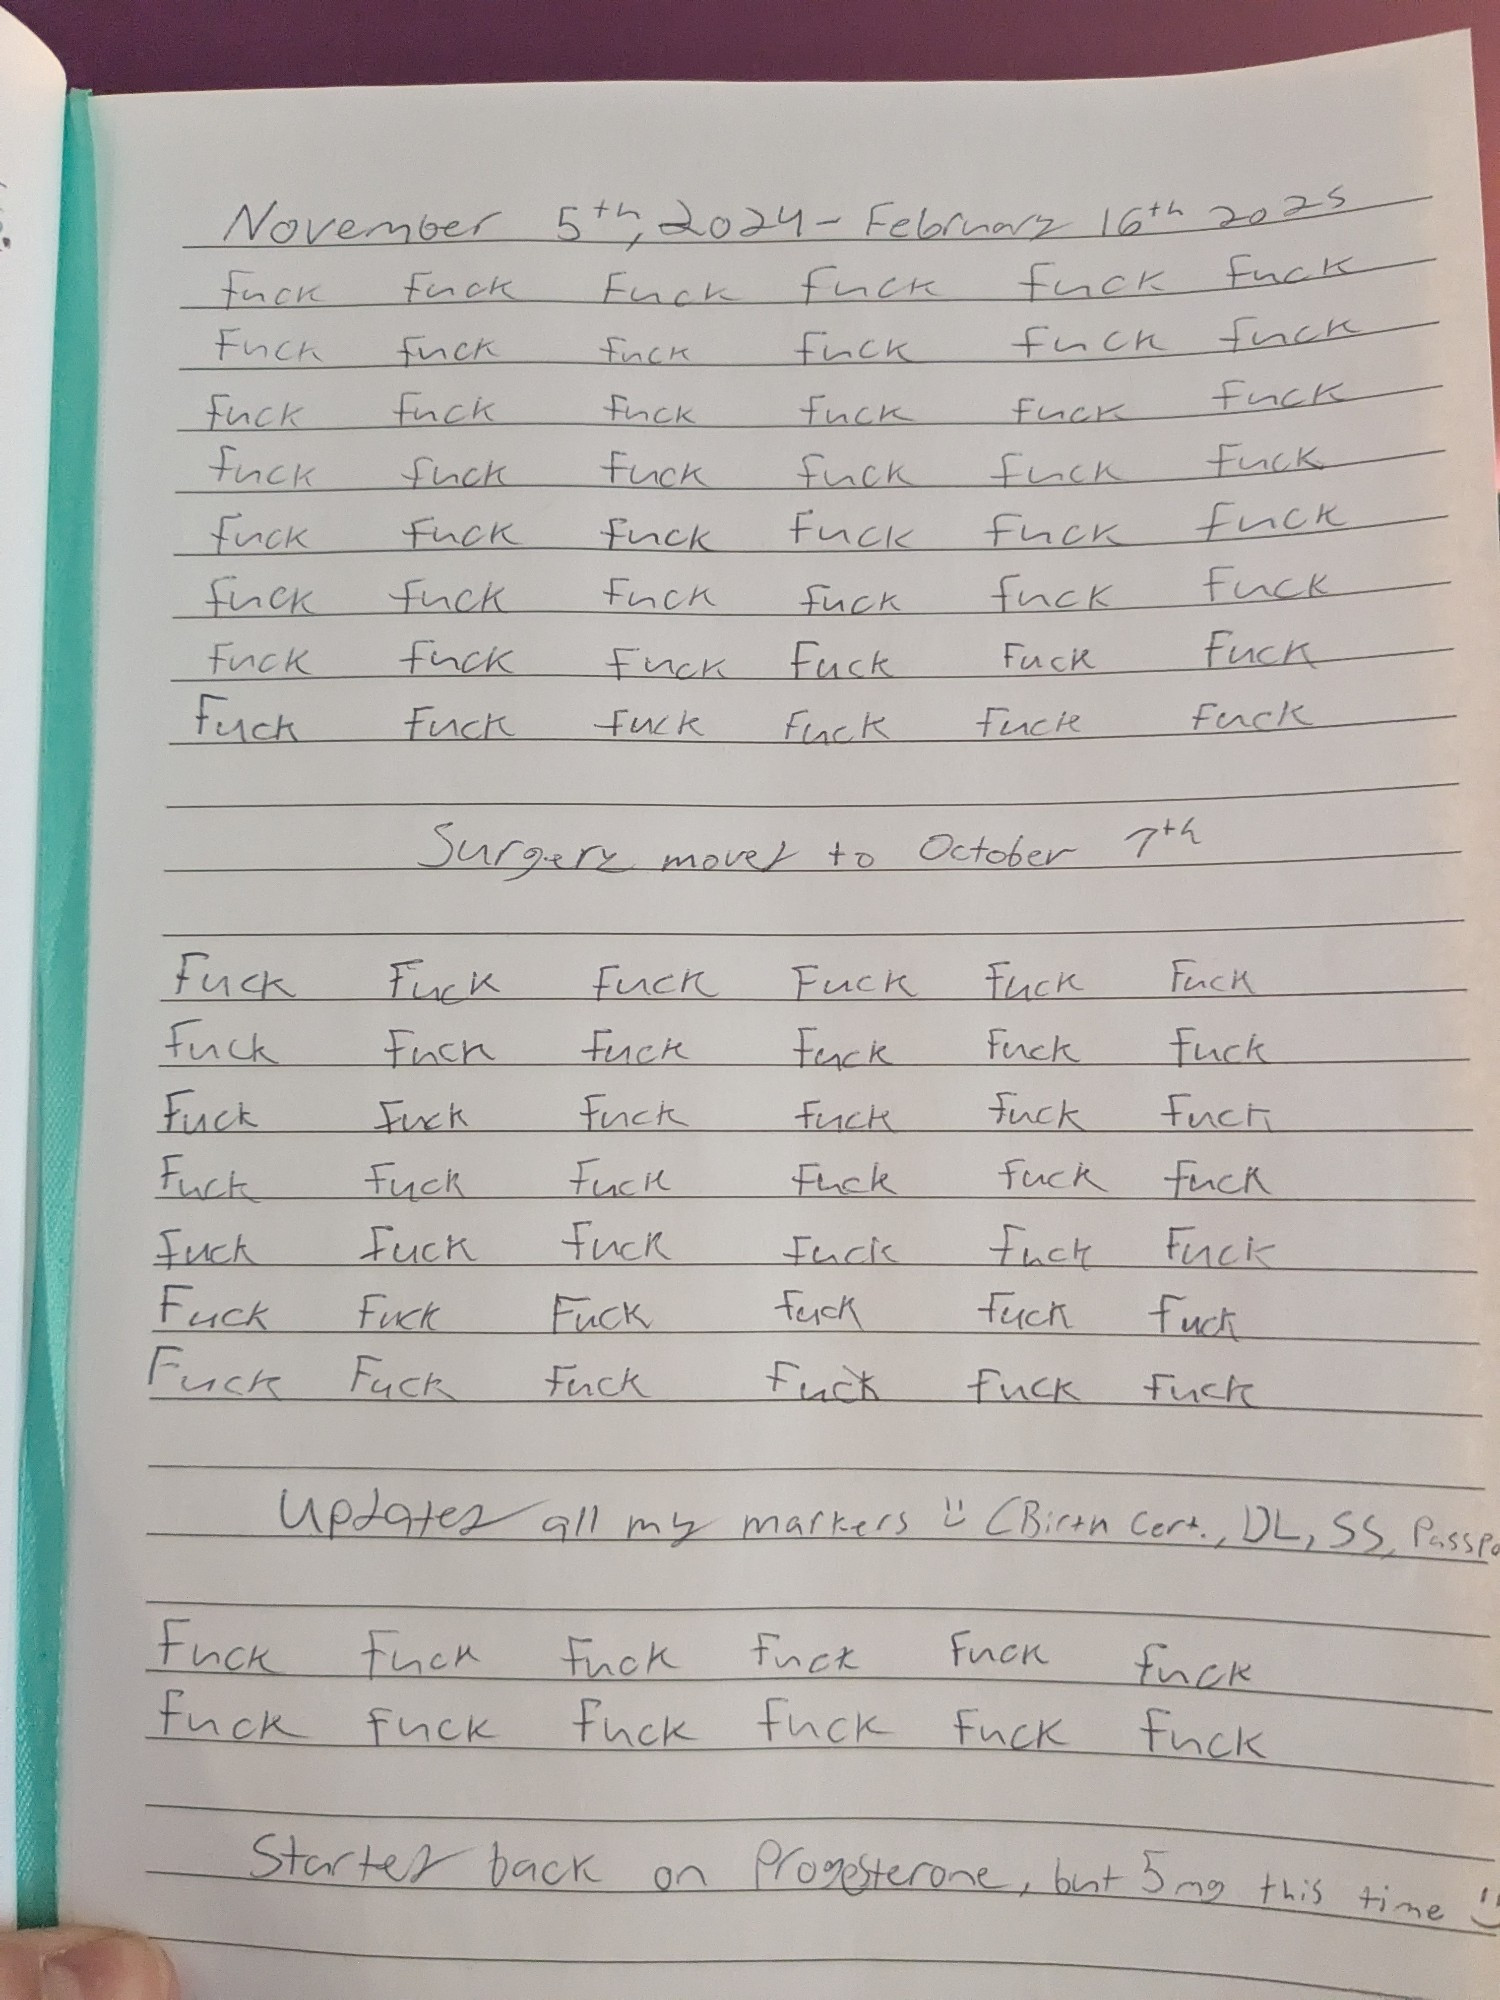 November 5th, 2024 - February 16th 2025
fuck fuck Fuck fuck fuck fuck
Fuck fuck fuck fuck fuck fuck
fuck fuck fuck fuck fuck fuck
fuck fuck fuck fuck fuck fuck
fuck fuck fuck fuck fuck fuck
fuck fuck fuck fuck fuck fuck
Fuck fuck Fuck Fuck Fuck Fuck
Fuck Fuck fuck Fuck Fuck Fuck
Surgery moved to October 7th
Fuck Fuck Fuck Fuck Fuck Fuck
Fuck Fuck fuck Fuck Fuck fuck
Fuck Fuck Fuck fuck fuck Fuck
Fuck Fuck Fuck Fuck fuck fuck
fuck Fuck fuck Fuck fuck Fuck
Fuck Fuck Fuck fuck fuck fuck
Fuck Fuck fuck Fuck fuck fuck
Updated all my markers :) (Birth Cert., DL, SS, Passpo
Fuck Fuck fuck fuck Fuck fuck
fuck fuck fuck fuck fuck fuck
Started back on Progesterone, but 5mg this time :)